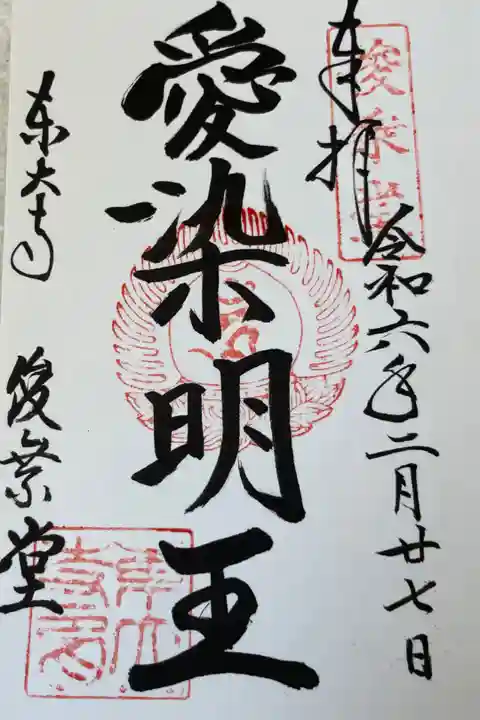 奉拝
令和六年二月廿七日
俊乗堂
愛染明王
東大寺
俊乗堂